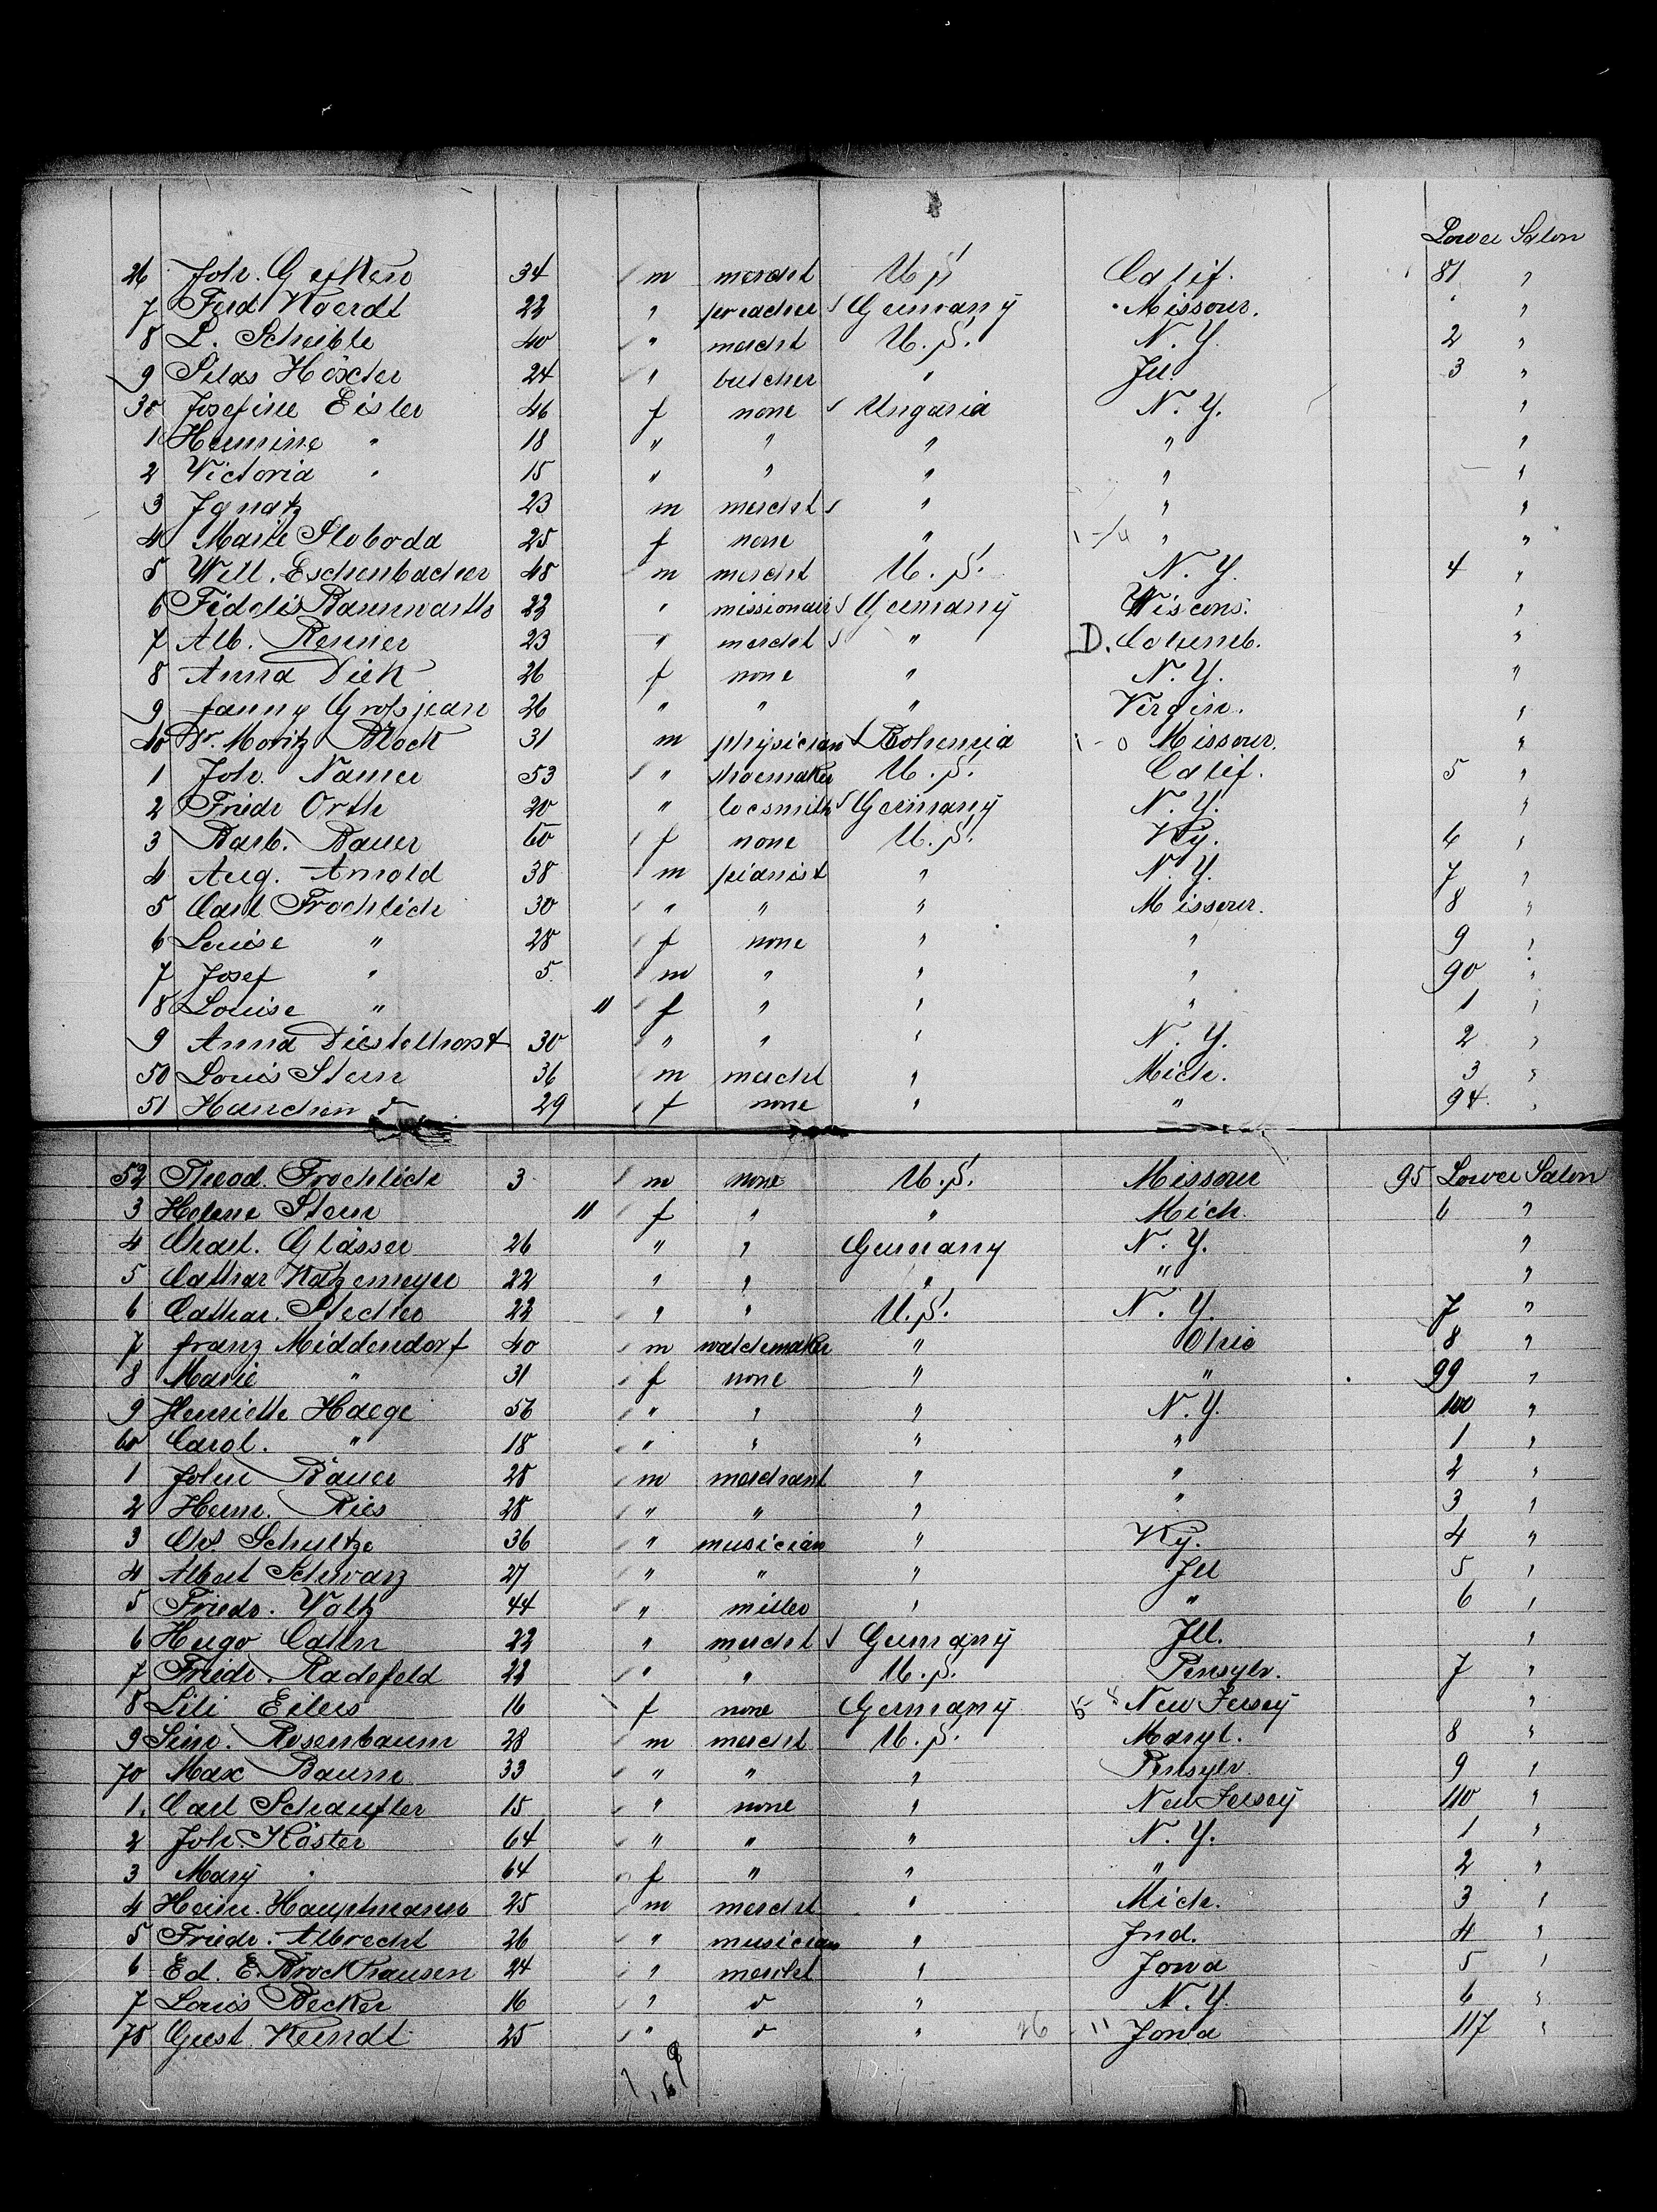 Lower Salon
26 Joh. Gerken 34 m mercht U. S. Calif. 81 "
7 Ferd Noerdt 22 " preacher Germany Missour. "
8 L. Scheible 40 " mercht U. S. N. Y. 2 "
9 Silas Höxter 24 " butcher " Ill. 3 "
30 Josefine Eisler 46 f none Ungaria N. Y. "
1 Hermine " 18 " " " " "
2 Victoria " 15 " " " " "
3 Ignatz 23 m mercht " " "
4 Marie Sloboda 25 f none " " "
5 Will. Eschenbacher 48 m mercht U. S. N. Y. 4 "
6 Fidelis Bannwarth 22 " missionair Germany Wiscons. "
7 Alb. Renner 23 " mercht " D. Columb. "
8 Anna Dick 26 f none " N. Y. "
9 Fanny Großjean 26 " " " Virgin. "
40 Dr. Moritz Block 31 m physician Bohemia Missour. "
1 Joh. Namer 53 " shoemaker U. S. Calif. 5 "
2 Friedr Orth 20 " locsmith Germany N. Y. "
3 Barb. Bauer 60 f none U. S. Ky. 6 "
4 Aug. Arnold 38 m pianist " N. Y. 7 "
5 Carl Froehlich 30 " " " Missour. 8 "
6 Louise " 28 f none " " 9 "
7 Josef " 5 m " " " 90 "
8 Louise " 11 f " " " 1 "
9 Anna Diestelhorst 30 " " " N. Y. 2 "
50 Louis Stern 36 m mercht " Mich. 3 "
51 Hanchen d 29 f none " " 94 "
52 Theod. Froehlich 3 m none U. S. Missour 95 Lower Salon
3 Helene Stern 11 f " " Mich. 6 "
4 Charl. Glässer 26 " " Germany N. Y. "
5 Cathar Katzemeyer 22 " " " " "
6 Cathar. Stecher 22 " " U. S. N. Y. 7 "
7 Franz Middendorf 40 m watchmaker " Ohio 8 "
8 Marie " 31 f none " " 99 "
9 Henriette Haege 56 " " " N. Y. 100 "
60 Carol. " 18 " " " " 1 "
1 John Bauer 28 m merchant " " 2 "
2 Herm. Ries 28 " " " " 3 "
3 Chs Schultze 36 " musician " Ky. 4 "
4 Albert Schwarz 27 " " " Ill 5 "
5 Friedr. Waltz 44 " miller " " 6 "
6 Hugo Cahn 22 " mercht Germany Ill. "
7 Friedr. Radefeld 22 " " U. S. Pensylv. 7 "
8 Lili Eilers 16 f none Germany New Jersey "
9 Sim. Rosenbaum 28 m mercht U. S. Maryl. 8 "
70 Max Baum 33 " " " Pensylv. 9 "
1. Carl Schaufler 15 " none " New Jersey 110 "
2 Joh. Köster 64 " " " N. Y. 1 "
3 Mary " 64 f " " " 2 "
4 Heinr. Hauptmann 25 m mercht " Mich. 3 "
5 Friedr. Albrecht 26 " musician " Ind. 4 "
6 Ed. E. Brockhausen 24 " mercht " Iowa 5 "
7 Louis Becker 16 " d " N. Y. 6 "
78 Gust. Kundt 25 " d " Iowa 117 "